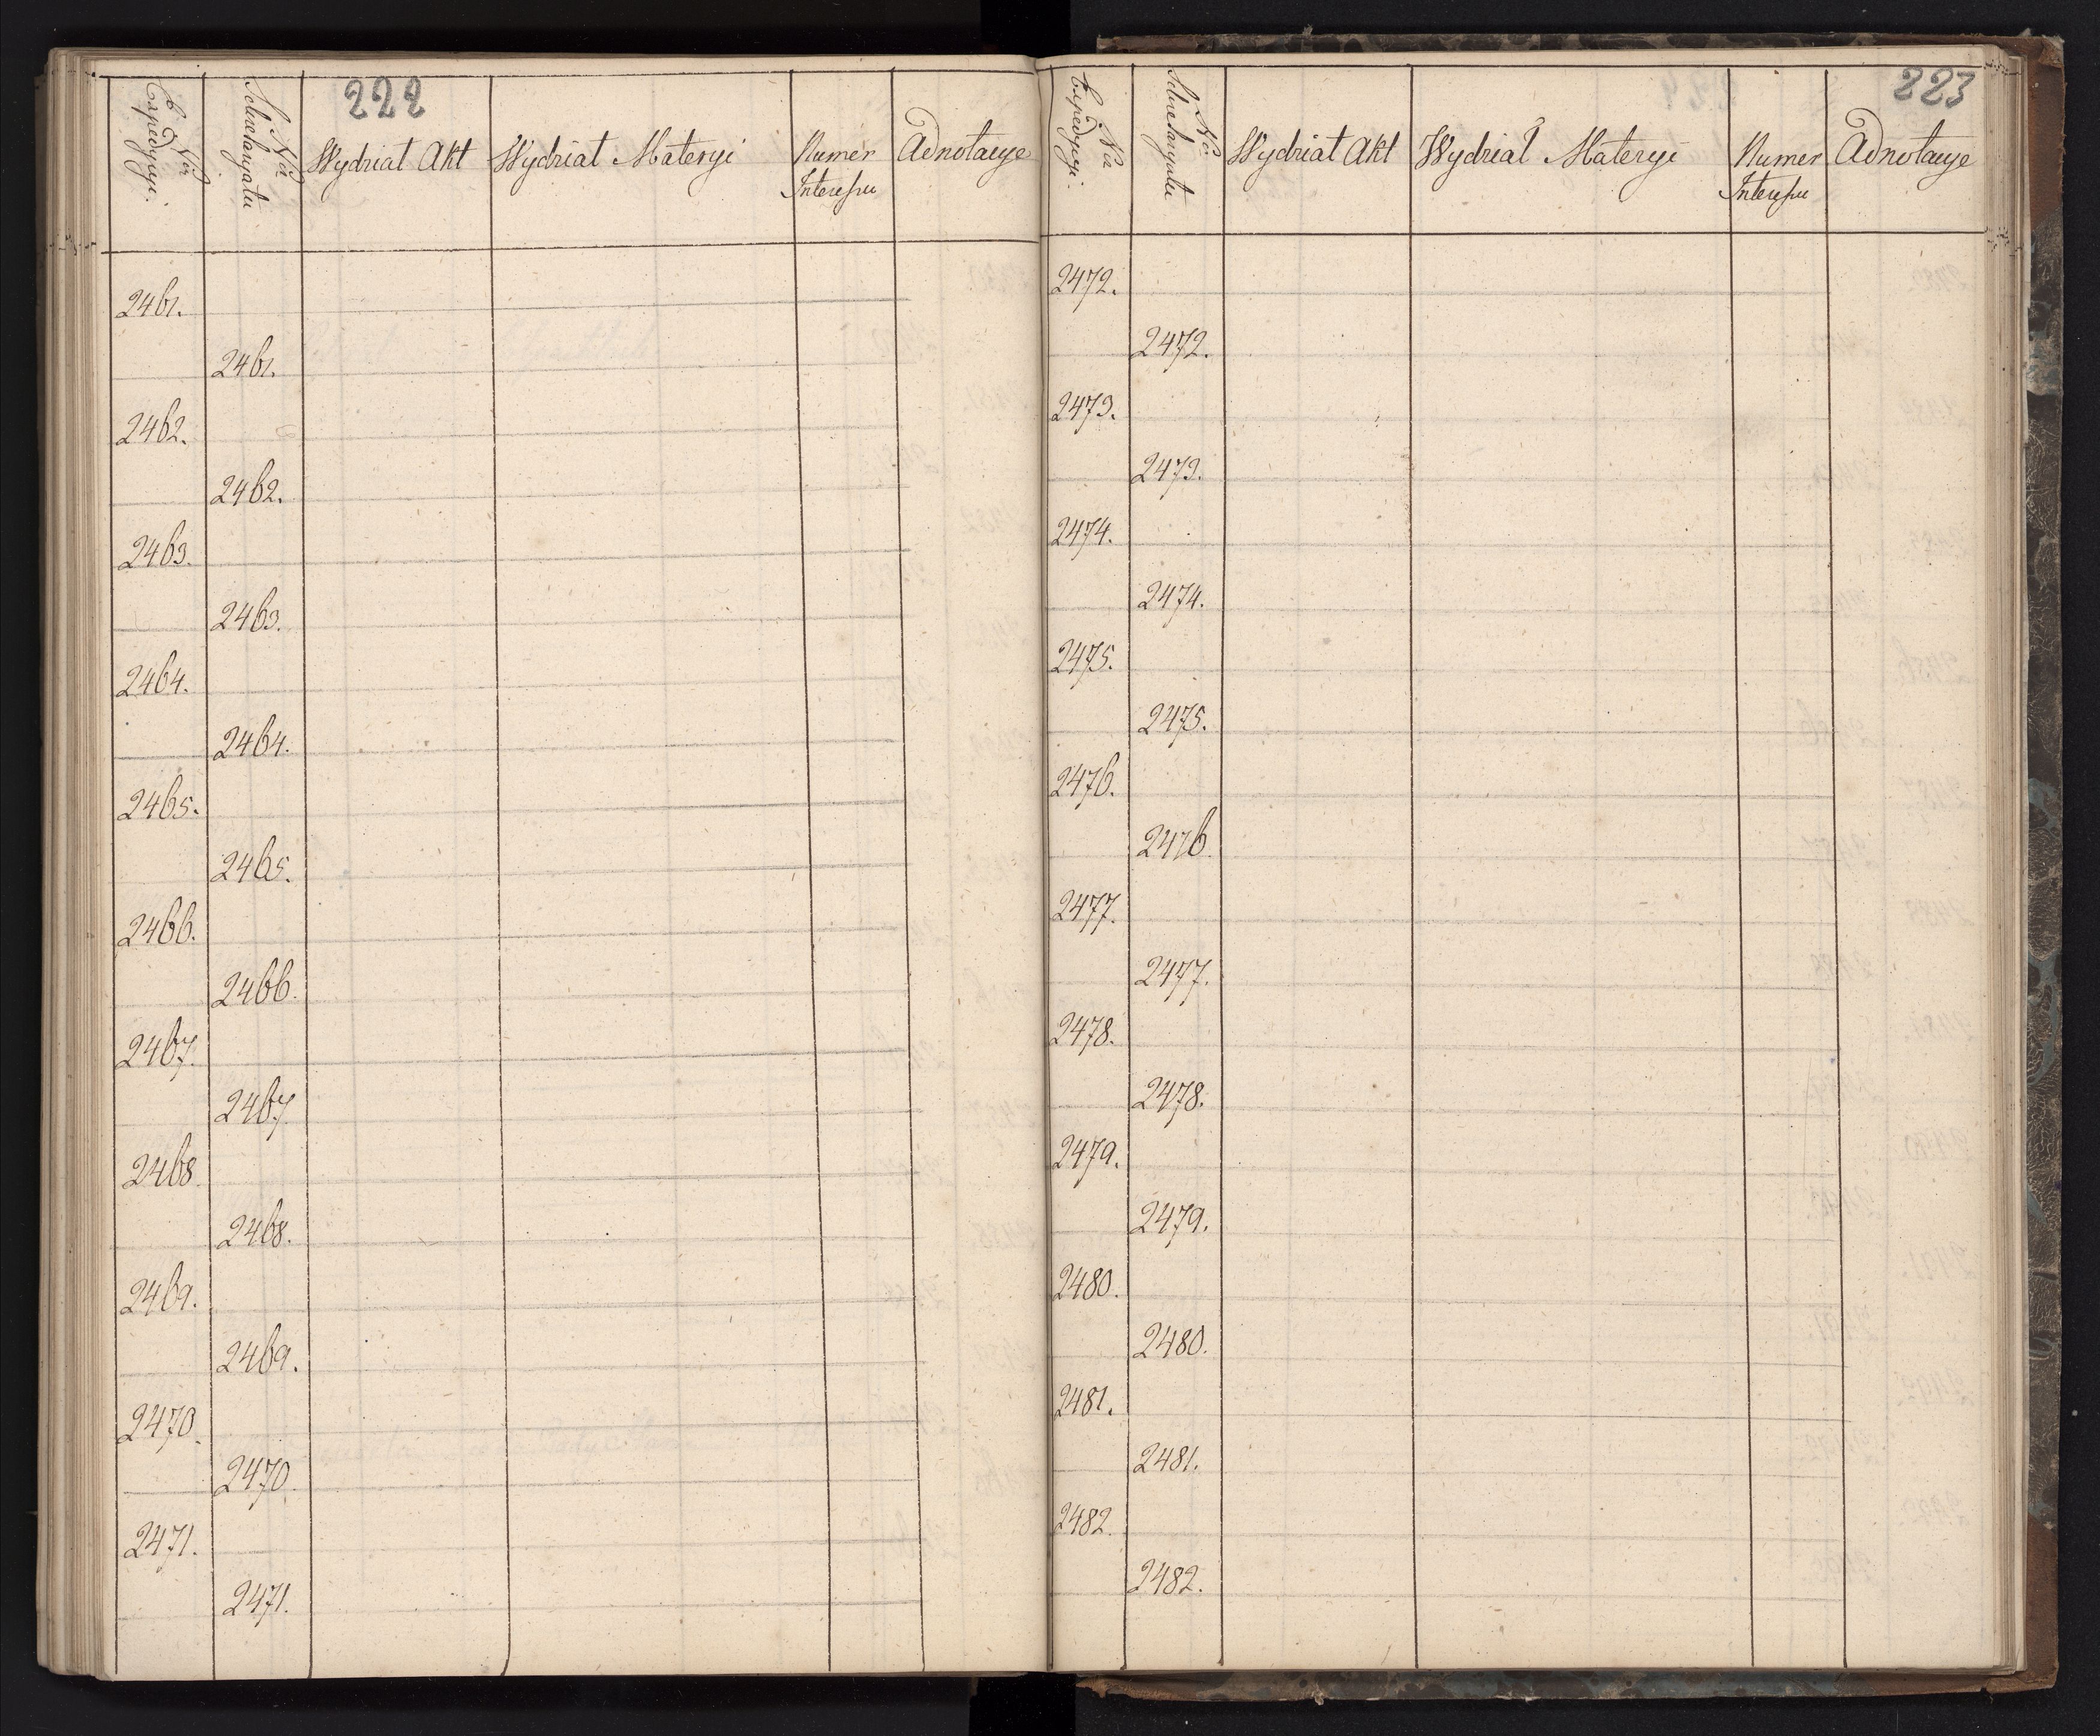 222
Nro Expedycyi.
Nro Sekretaryatu
Wydział Akt
Wydział Materyi
Numer Interessu
Adnotacye
2461.
2461.
2462.
2462.
2463.
2463.
2464.
2464.
2465.
2465.
2466.
2466.
2467.
2467.
2468.
2468.
2469.
2469.
2470.
2470.
2471.
2471.
223
Nro Expedycyi.
Nro Sekretaryatu
Wydział Akt
Wydział Materyi
Numer Interessu
Adnotacye
2472.
2472.
2473.
2473.
2474.
2474.
2475.
2475.
2476.
2476
2477.
2477.
2478.
2478.
2479.
2479.
2480.
2480.
2481.
2481.
2482.
2482.